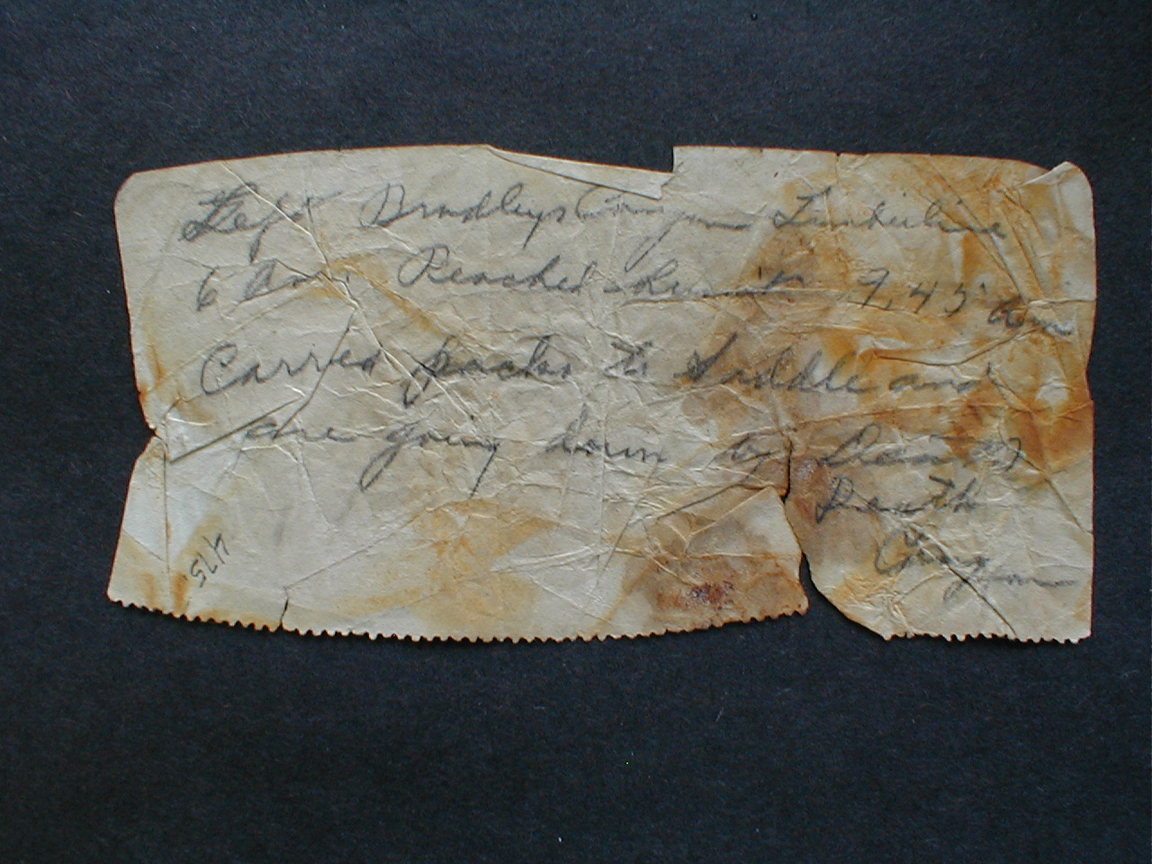 Left Bradleys Canyon Timberline
6 Am. Reached Summit 7,45 am
Carred packs to Saddle and
are going down by Death
Canyon
475